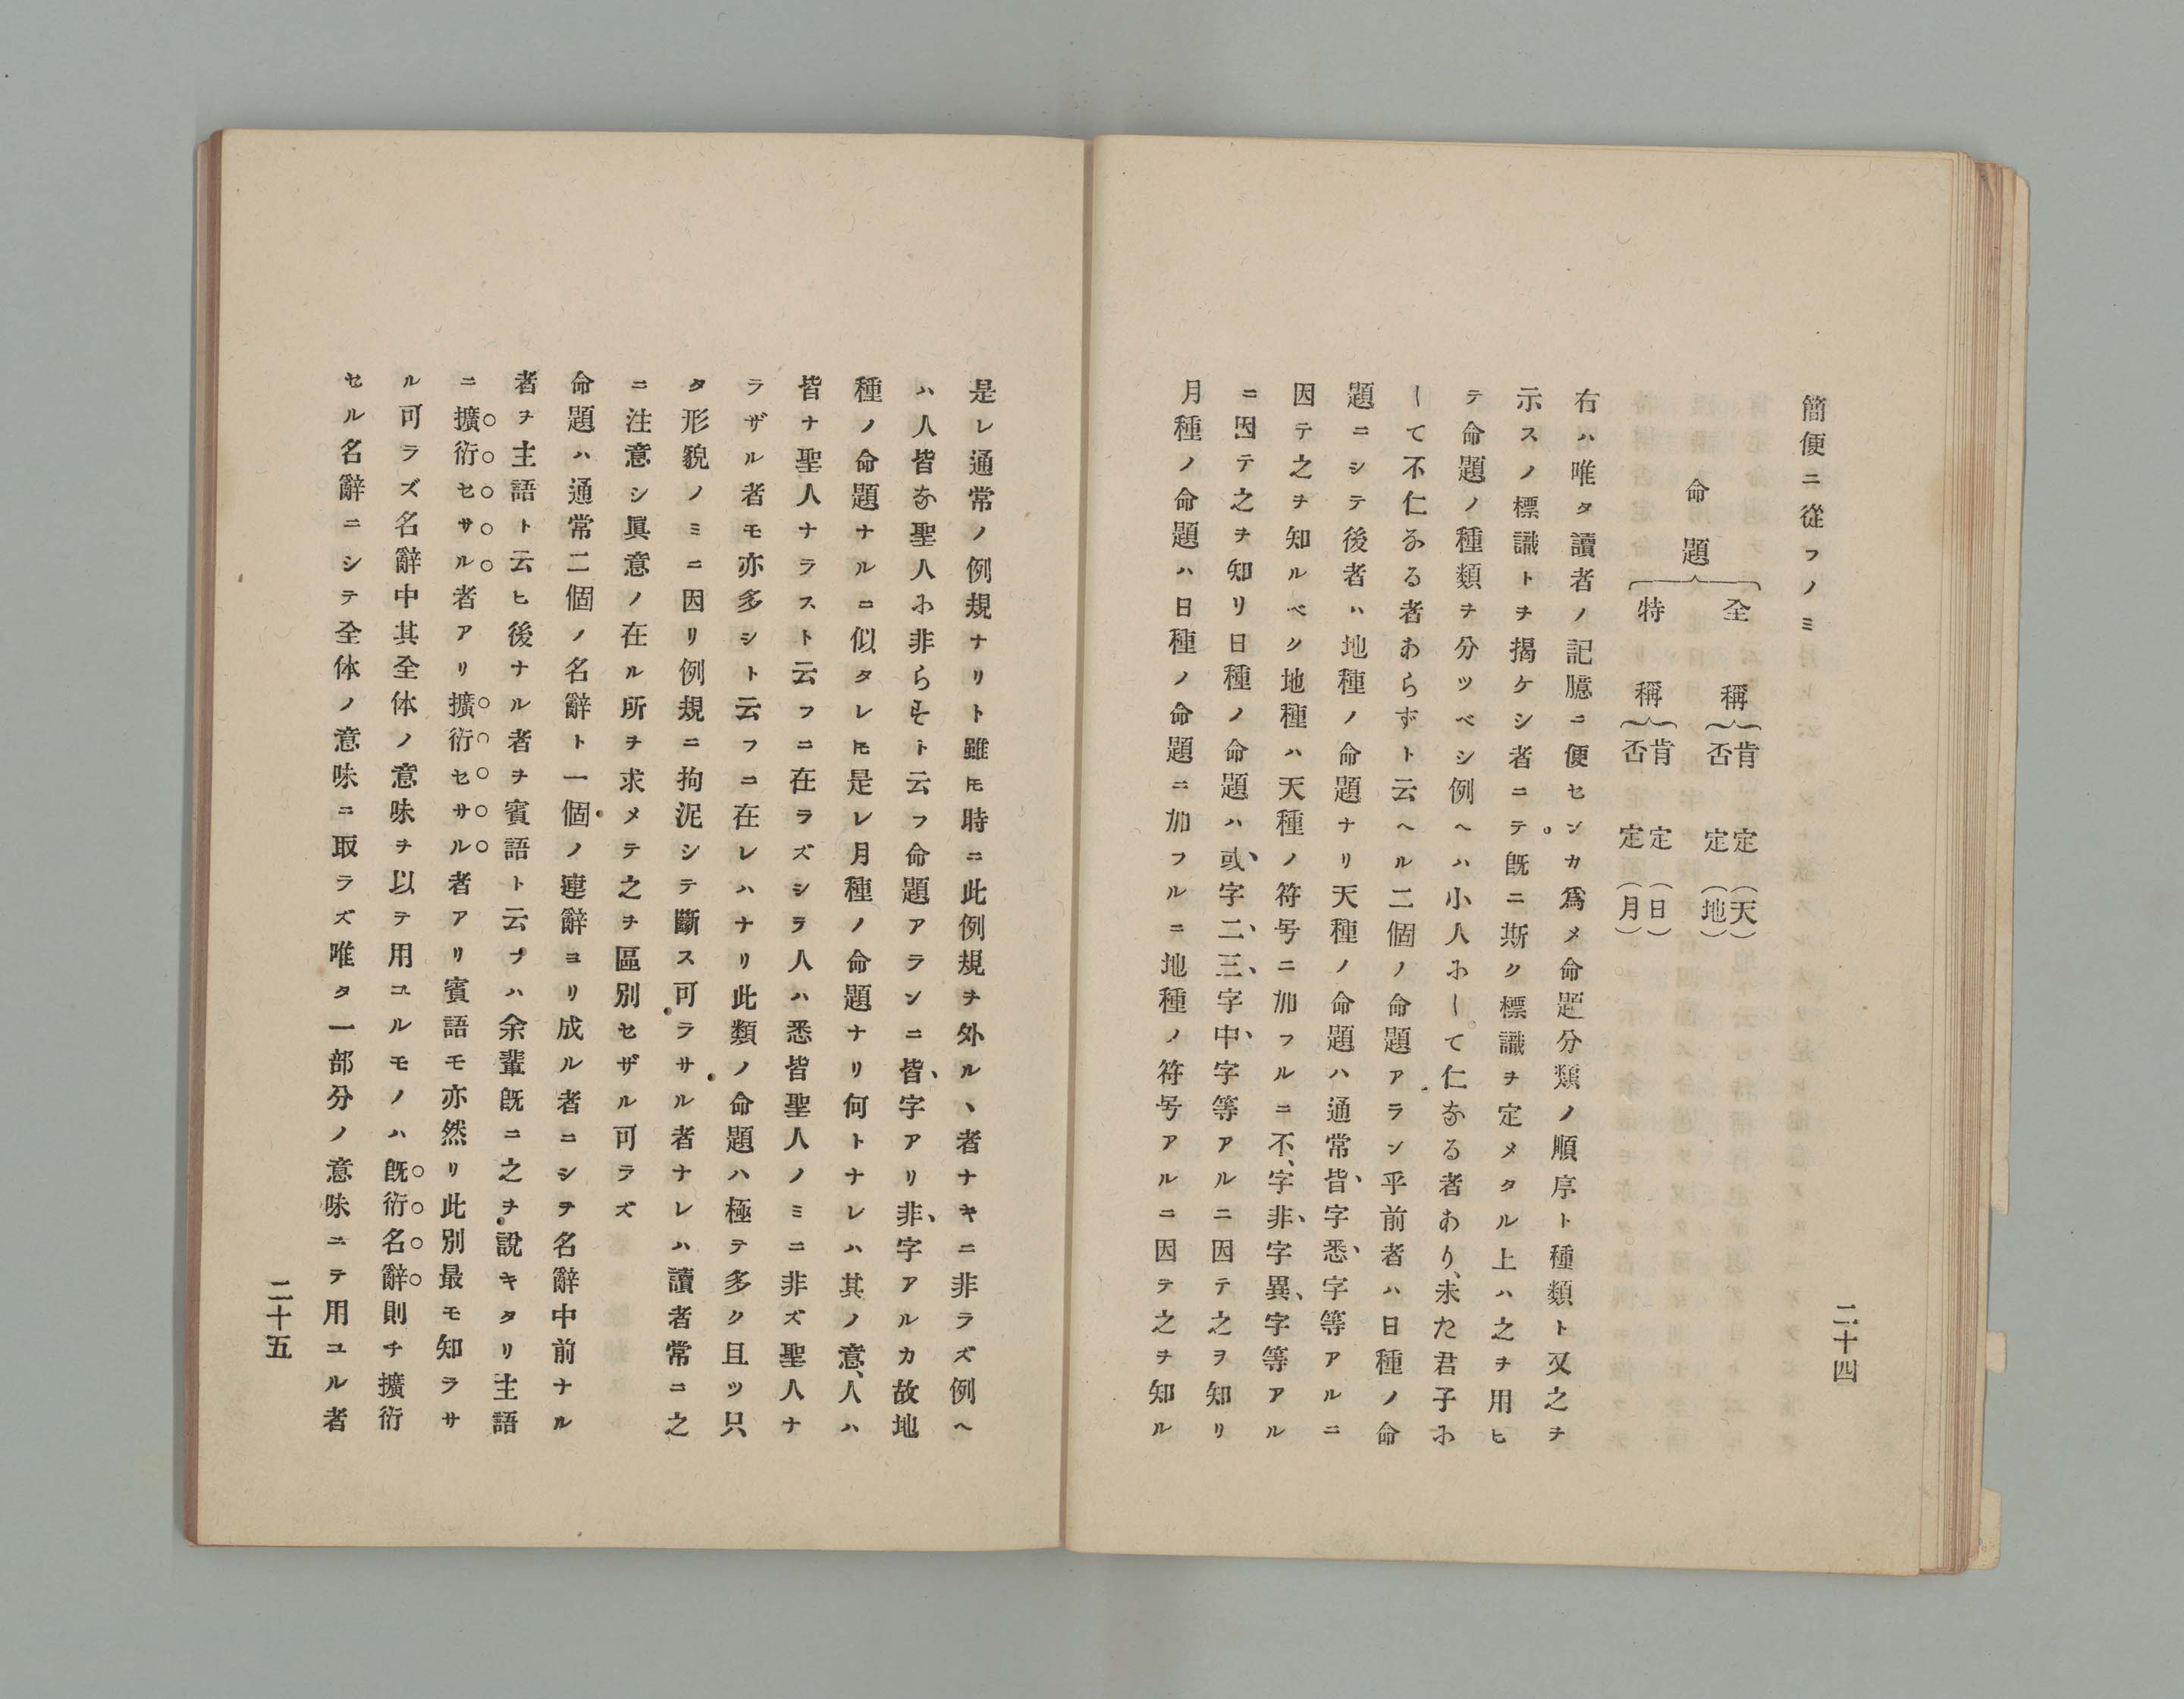 簡便ニ從フノミ
命題
全稱
肯定(天)
否定(地)
特稱
肯定(日)
否定(月)
右ハ唯タ讀者ノ記臆ニ便センカ爲メ命題分類ノ順序ト種類ト又之ヲ
示スノ標識トヲ揭ケシ者ニテ。旣ニ斯ク標識ヲ定メタル上ハ之ヲ用ヒ
テ命題ノ種類ヲ分ツベシ例ヘハ小人ホして仁なる者あり、未た君子ホ
して不仁なる者あらずト云ヘル二個ノ命題アラン乎前者ハ日種ノ命
題ニシテ後者ハ地種ノ命題ナリ天種ノ命題ハ通常皆、字悉、字等アルニ
因テ之ヲ知ルベク地種ハ天種ノ符号ニ加フルニ不、字非、字異、字等アル
ニ因テ之ヲ知リ日種ノ命題ハ或、字二、三、字中、字等アルニ因テ之ヲ知リ
月種ノ命題ハ日種ノ命題ニ加フルニ地種ノ符号アルニ因テ之ヲ知ル
二十四
是レ通常ノ例規ナリト雖𪜈時ニ此例規ヲ外ルヽ者ナキニ非ラズ例ヘ
ハ人皆な聖人ホ非らずト云フ命題アランニ皆、字アリ非、字アルカ故地
種ノ命題ナルニ似タレ𪜈是レ月種ノ命題ナリ何トナレハ其ノ意、人ハ
皆ナ聖人ナラスト云フニ在ラズシラ人ハ悉皆聖人ノミニ非ズ聖人ナ
ラザル者モ亦多シト云フニ在レハナリ此類ノ命題ハ極テ多ク且ツ只
タ形貌ノミニ因リ例規ニ拘泥シテ斷ス可ラサル者ナレハ讀者常ニ之
ニ注意シ眞意ノ在ル所ヲ求メテ之ヲ區別セザル可ラズ
命題ハ通常二個ノ名辭ト一個ノ連辭ヨリ成ル者ニシテ名辭中前ナル
者ヲ主語ト云ヒ後ナル者ヲ賓語ト云フハ余輩旣ニ之ヲ說キタリ主語
ニ擴衍セサル者アリ擴衍セサル者アリ賓語モ亦然リ此別最モ知ラサ
ル可ラズ名辭中其全体ノ意味ヲ以テ用ユルモノハ旣衍名辭則チ擴衍
セル名辭ニシテ全体ノ意味ニ取ラズ唯タ一部分ノ意味ニテ用ユル者
二十五